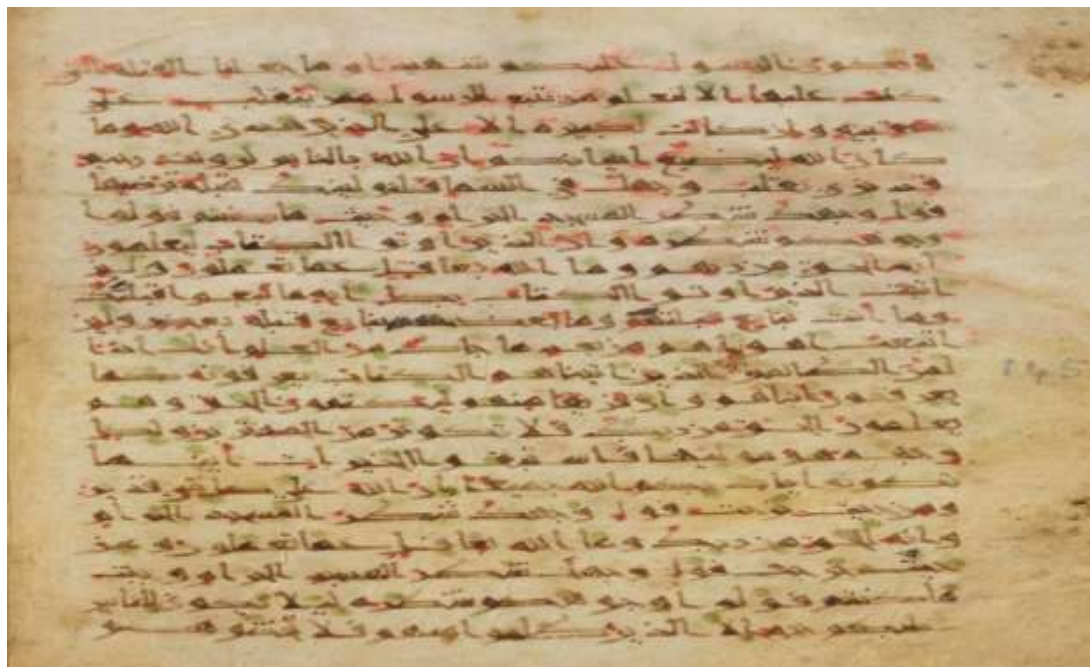 ويكون الرسول عليكم شهيدا وما جعلنا القبلة التي
كنت عليها الا لنعلم من يتبع الرسول ممن ينقلب على
عقبيه وان كانت لكبيرة الا على الذين هدى الله وما
كان الله ليضيع ايمانكم ان الله بالناس لروف رحيم
قد نرى تقلب وجهك في السما فلنولينك قبلة ترضيها
فول وجهك شطر المسجد الحرام وحيث ما كنتم فولوا
وجوهكم شطره وان الذين اوتوا الكتاب ليعلمون
انه الحق من ربهم وما الله بغافل عما يعملون ولين
اتيت الذين اوتوا الكتاب بكل اية ما تبعوا قبلتك
وما انت بتابع قبلتهم وما بعضهم بتابع قبلة بعض ولين
اتبعت اهواهم من بعد ما جاك من العلم انك اذا
لمن الظالمين الذين اتيناهم الكتاب يعرفونه كما
يعرفون ابناهم وان فريقا منهم ليكتمون الحق وهم
يعلمون الحق من ربك فلا تكونن من الممترين ولكل
وجهة هو موليها فاستبقوا الخيرات اين ما
تكونوا يات بكم الله جميعا ان الله على كل شي قدير
ومن حيث خرجت فول وجهك شطر المسجد الحرام
وانه للحق من ربك وما الله بغافل عما تعملون ومن
حيث خرجت فول وجهك شطر المسجد الحرام وحيث
ما كنتم فولوا وجوهكم شطره ليلا يكون للناس
عليكم حجة الا الذين ظلموا منهم فلا تخشوهم
145